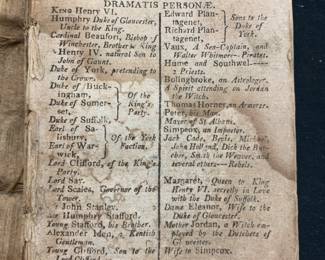 DRAMATIS PERSONÆ
KING HENRY VI.
Humphry Duke of Gloucester,
Uncle to the King.
Cardinal Beaufort, Bishop of
Winchester, Brother to King
Henry IV. natural Son to
John of Gaunt.
Duke of York, pretending to
the Crown.
Duke of Buckingham,
Duke of Somerset,
Duke of Suffolk,
Of the King's Party.
Earl of Salisbury,
Earl of Warwick,
Of the York Faction.
Lord Clifford, of the King's
Party.
Lord Say.
Lord Scales, Governor of the
Tower.
John Stanley.
Humphry Stafford.
Young Stafford, his Brother.
Alexander Iden, a Kentish
Gentleman.
Young Clifford, Son to the
Lord Clifford.
Edward Plantagenet,
Richard Plantagenet,
Sons to the Duke of York.
Vaux, A Sea-Captain, and
Walter Whitmore--Pirates.
Hume and Southwel--
Priests.
Bolingbroke, an Astrologer.
A Spirit attending on Jordan
the Witch.
Thomas Horner, an Armorer.
Peter, his Man.
Mayor of St Albans.
Simpcox, an Impostor.
Jack Cade, Bevis, Michael,
John Holland, Dick the Butcher,
Smith the Weaver, and
several others--Rebels.
Margaret, Queen to King
Henry VI. secretly in Love
with the Duke of Suffolk.
Dame Eleanor, Wife to the
Duke of Gloucester.
Mother Jordan, a Witch employed
by the Dutchess of
Gloucester.
Wife to Simpcox.